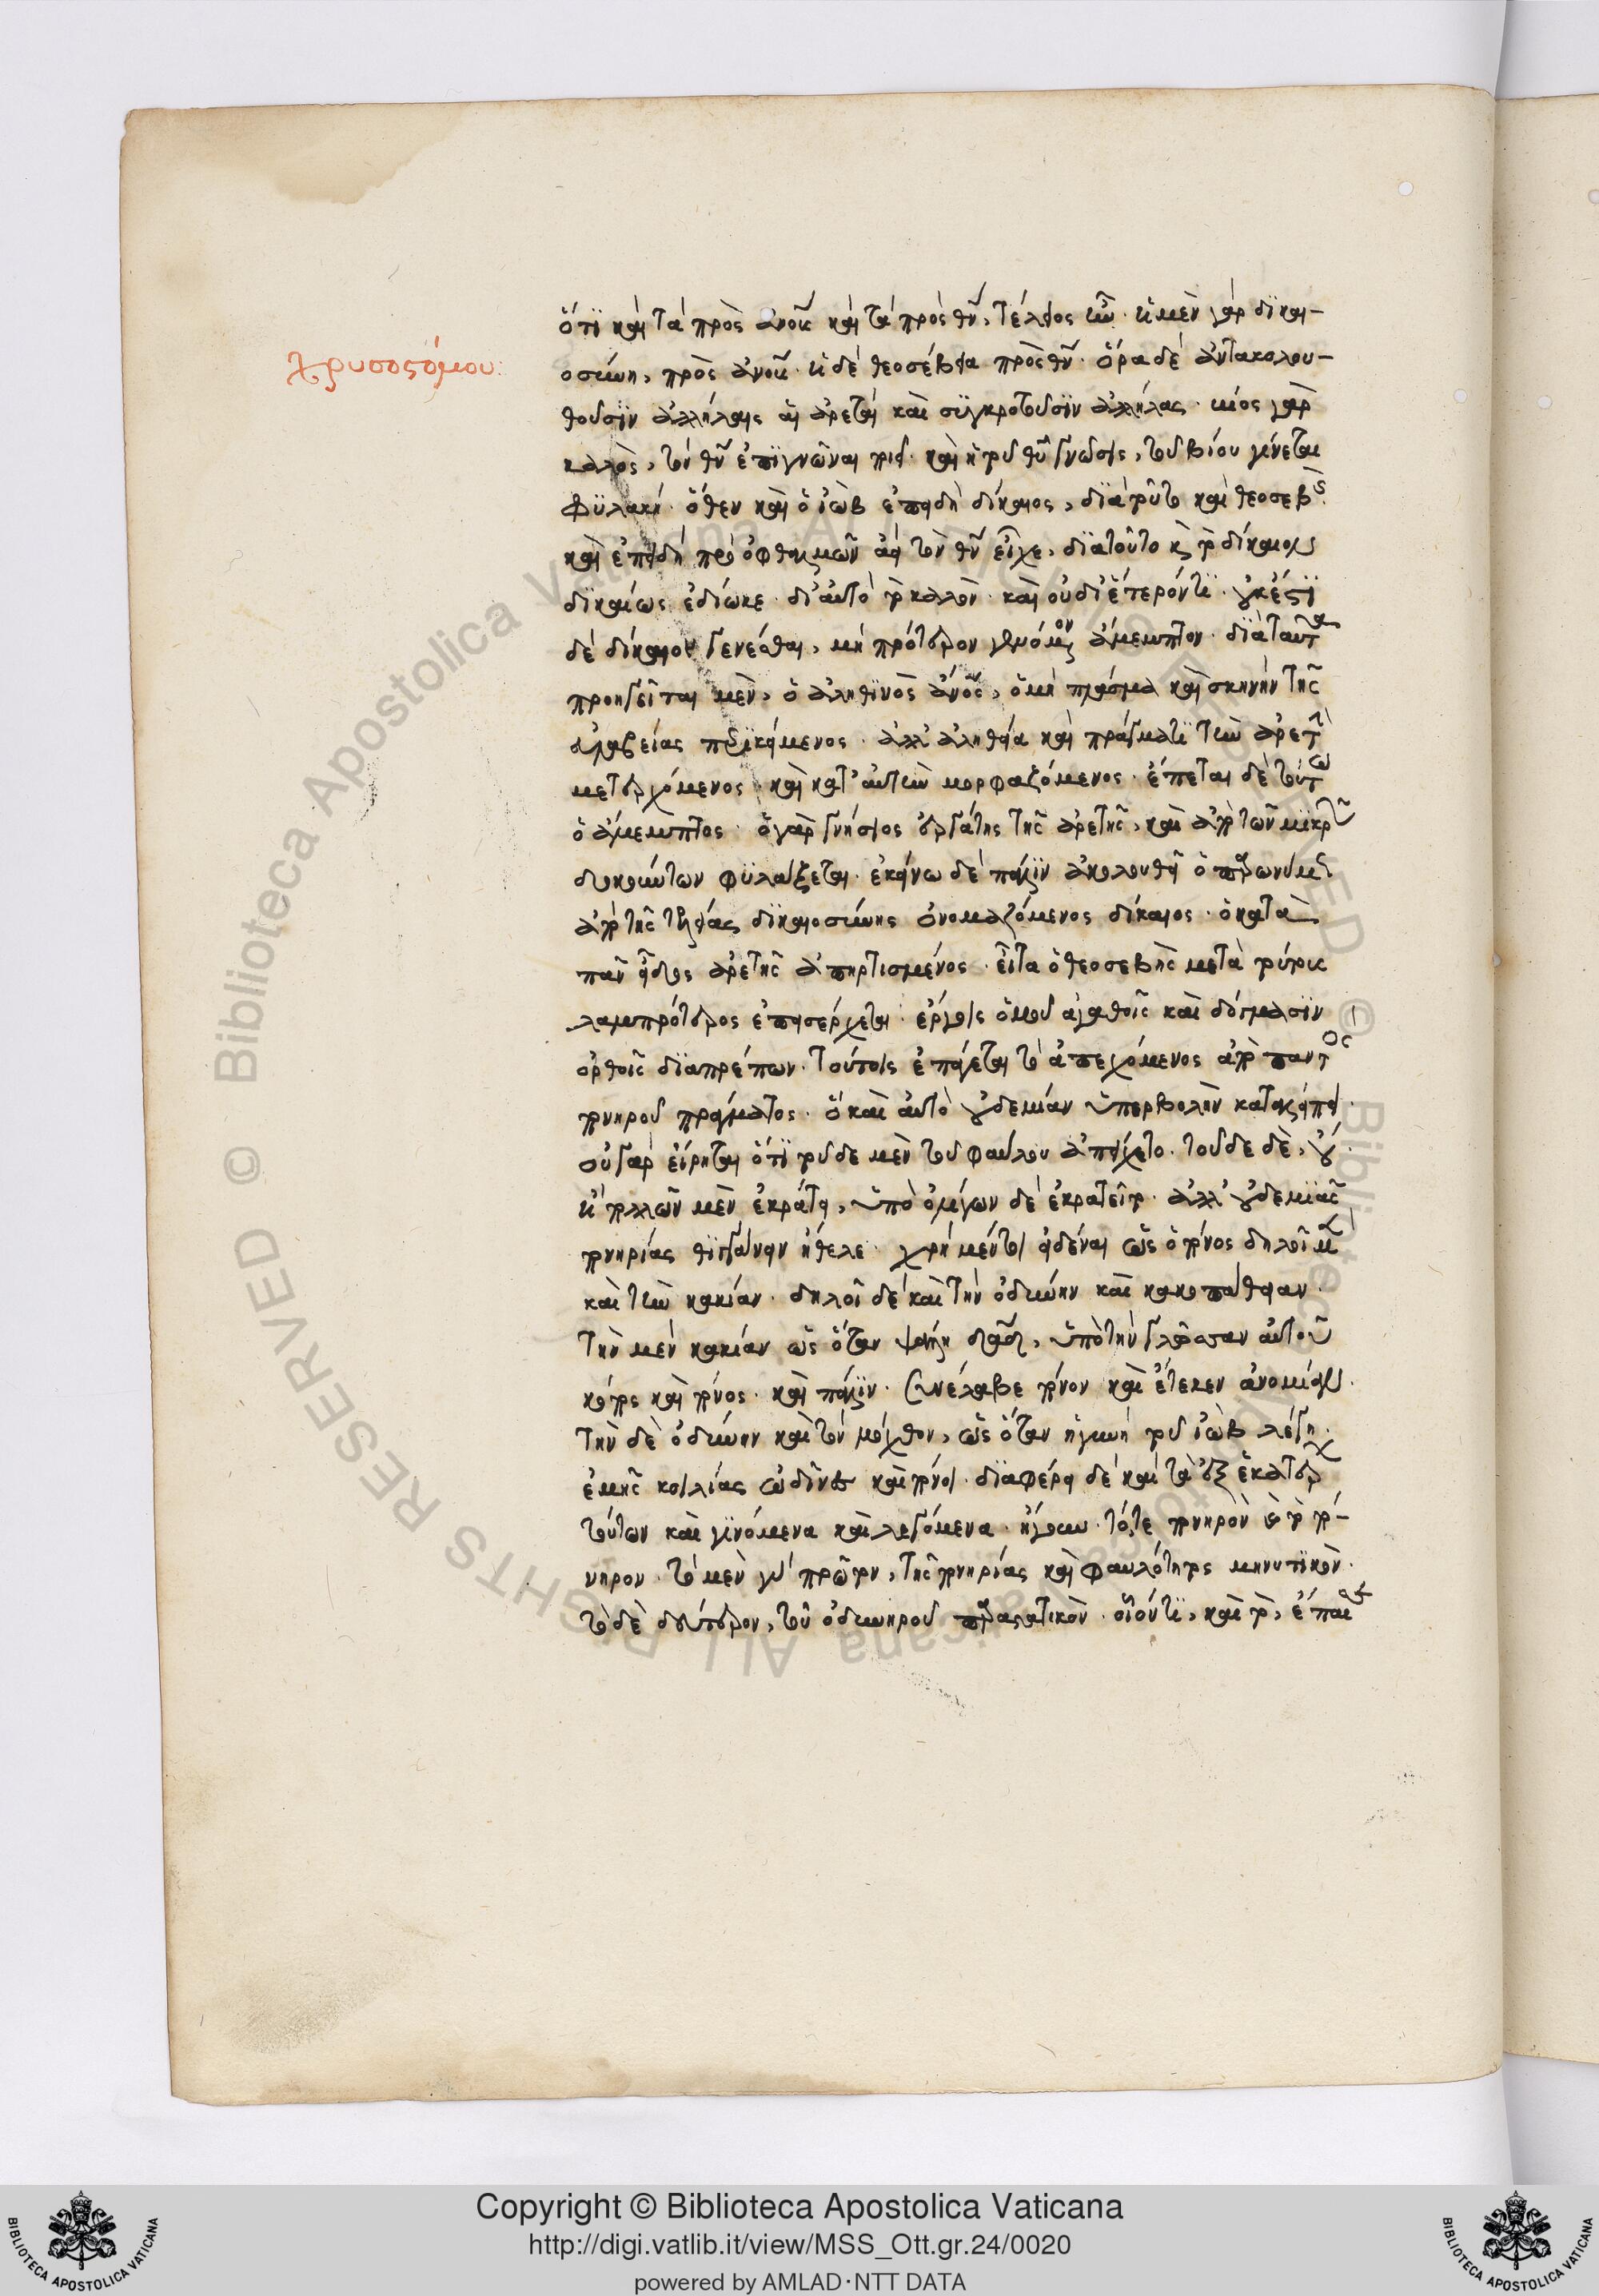 ὅτι καὶ τὰ πρὸς ἀνους καὶ τὰ πρὸς θν, τέλειος ἦν· ἡ μὲν γὰρ δικαι-
χρυσοστόμου:
οσύνη, πρὸς ἀνους· ἡ δὲ θεοσέβεια πρὸς θν· ὅρα δὲ ἀντακολου-
θοῦσιν ἀλλήλαις αἱ ἀρεταὶ καὶ συγκροτοῦσιν ἀλλήλας· βίος γὰρ
καλὸς, τὸν θν ἐπιγνῶναι ποιεῖ· καὶ ἡ τοῦ θυ γνῶσις, τοῦ βίου γίνεται
φυλακή· ὅθεν καὶ ὁ ἰὼβ ἐπειδὴ δίκαιος, διὰ τοῦτο καὶ θεοσεβὴς·
καὶ ἐπειδὴ πρὸ ὀφθαλμῶν ἀεὶ τὸν θν εἶχε, διὰ τοῦτο καὶ τὸ δίκαιον
δικαίως ἐδίωκε· δι' αὐτὸ τὸ καλὸν· καὶ οὐ δι' ἕτερόν τι· οὐκ ἔστι
δὲ δίκαιον γενέσθαι, μὴ πρότερον γενόμενον ἄμεμπτον· διὰ ταῦτα
προηγεῖται μὲν, ὁ ἀληθινὸς ἀνος, ὁ μὴ πλάσμα καὶ σκηνὴν τῆς
εὐλαβείας περικείμενος· ἀλλ' ἀληθεία καὶ πράγματι τὴν ἀρετὴν
μετερχόμενος· καὶ κατ' αὐτὴν μορφαζόμενος· ἕπεται δὲ τούτω
ὁ ἄμεμπτος· ὁ γὰρ γνήσιος ἐργάτης τῆς ἀρετῆς, καὶ ἀπὸ τῶν μικρῶν
δοκούντων φυλάξεται· ἐκείνω δὲ πάλιν ἀκολουθεῖ ὁ παρωνύμως
ἀπὸ τῆς τελείας δικαιοσύνης ὀνομαζόμενος δίκαιος· ὁ κατὰ
πᾶν εἶδος ἀρετῆς ἀπηρτισμένος· εἶτα ὁ θεοσεβὴς μετὰ τούτους
λαμπρότερος ἐπεισέρχεται· ἔργοις ὁμοῦ ἀγαθοῖς καὶ δόγμασιν
ὀρθοῖς διαπρέπων· τούτοις ἐπάγεται τὸ ἀπεχόμενος ἀπὸ παντὸς
πονηροῦ πράγματος· ὃ καὶ αὐτὸ οὐδεμίαν ὑπερβολὴν καταλείπει·
οὐ γὰρ εἴρηται ὅτι τοῦδε μὲν τοῦ φαύλου ἀπείχετο· τοῦδε δὲ, οὔ·
ἢ πολλῶν μὲν ἐκράτει, ὑπὸ ὀλίγων δὲ ἐκρατεῖτο· ἀλλ' οὐδεμιᾶς
πονηρίας θιγγάνειν ἤθελε· χρὴ μέντοι εἰδέναι ὡς ὁ πόνος δηλοῖ μὲν
καὶ τὴν κακίαν· δηλοῖ δὲ καὶ τὴν ὀδύνην καὶ κακοπάθειαν·
τὴν μὲν κακίαν ὡς ὅταν ψάλλη δαδ, ὑπὸ τὴν γλῶσσαν αὐτοῦ
κόπος καὶ πόνος· καὶ πάλιν· συνέλαβε πόνον καὶ ἔτεκεν ἀνομίαν·
τὴν δὲ ὀδύνην καὶ τὸν μόχθον, ὡς ὅταν ἡ γυνὴ τοῦ ἰὼβ λέγη·
ἐμῆς κοιλίας ὠδῖνες καὶ πόνοι· διαφέρει δὲ καὶ τὰ ἐξ ἑκατέρου
τούτων καὶ γινόμενα καὶ λεγόμενα· ἤγουν τό, τε πονηρὸν καὶ τὸ πό-
νηρον· τὸ μὲν γὰρ πρῶτον, τῆς πονηρίας καὶ φαυλότητος μηνυτικὸν·
τὸ δὲ δεύτερον, τοῦ ὀδυνηροῦ παραστατικὸν· οἷόν τι, καὶ τὸ, ἔπαισας
Copyright © Biblioteca Apostolica Vaticana
http://digi.vatlib.it/view/MSS_Ott.gr.24/0020
powered by AMLAD·NTT DATA
BIBLIOTECA APOSTOLICA VATICANA
BIBLIOTECA APOSTOLICA VATICANA
© Biblioteca Apostolica Vaticana ALL RIGHTS RESERVED